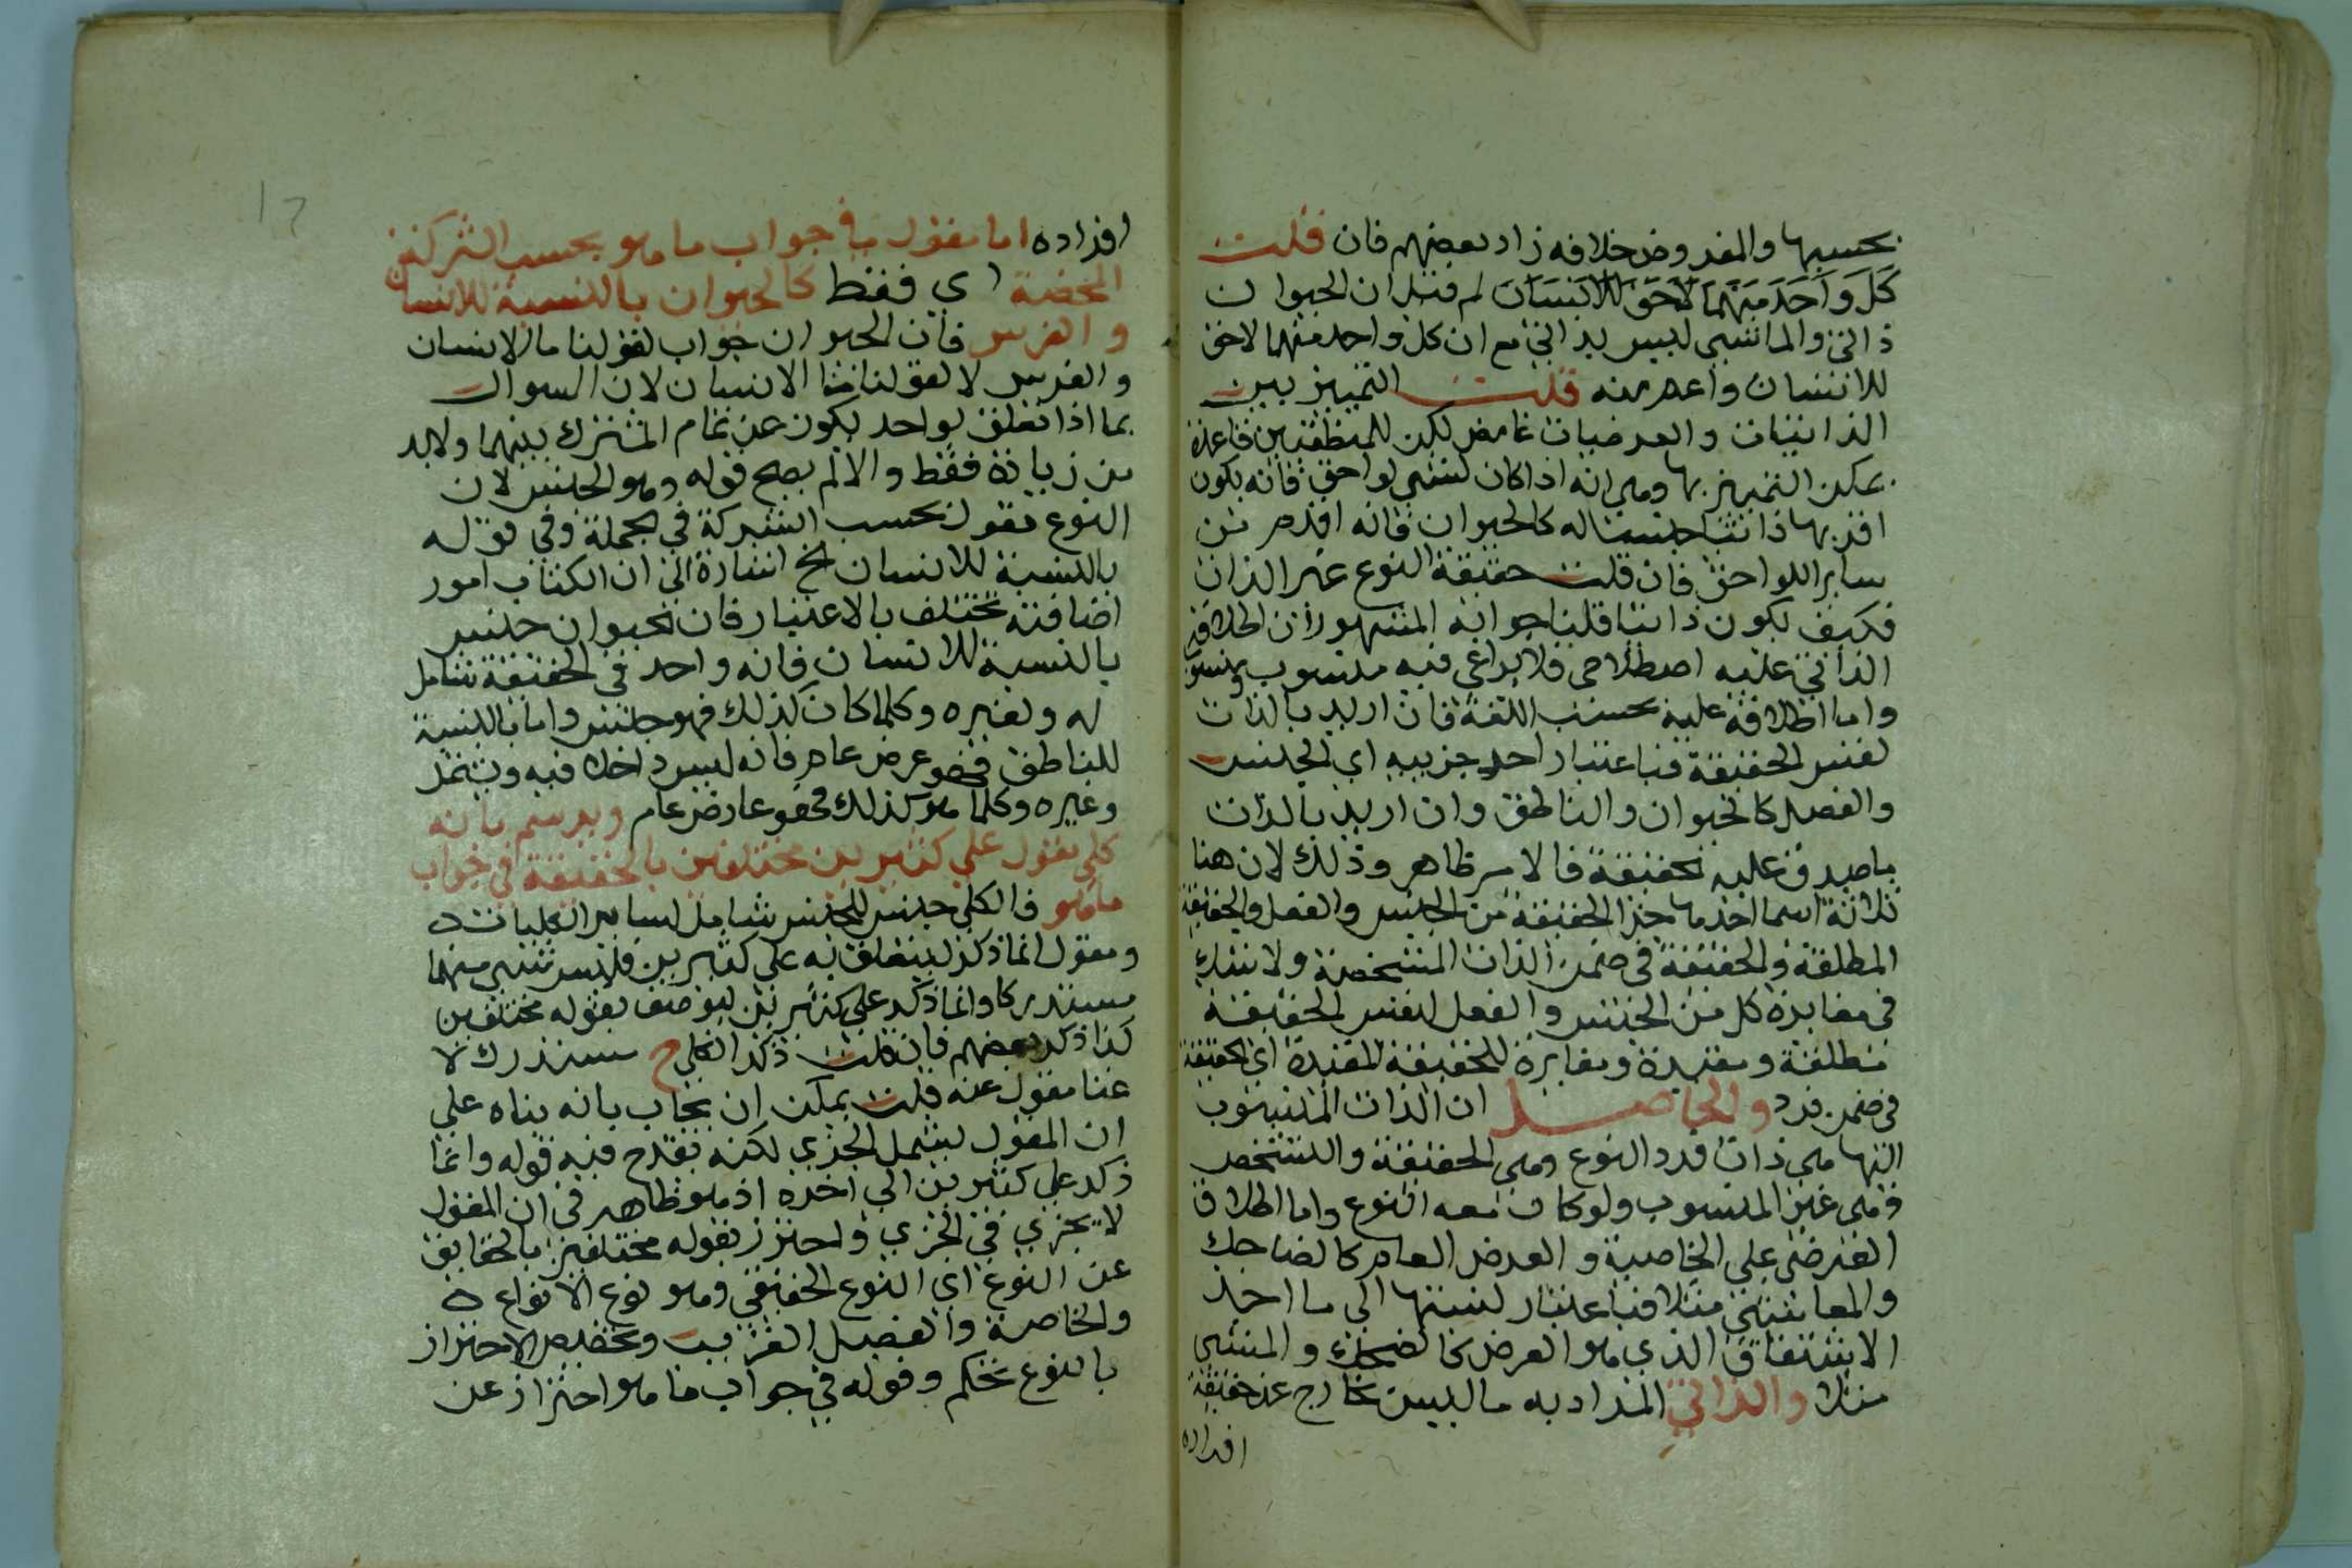 بحسبها والمفروض خلافه زاد بعضهم فان قلت
كل واحد منهما لاحق للانسان لم قيل ان الحيوان
ذاتي والماشي ليس بذاتي مع ان كل واحد منهما لاحق
للانسان واعم منه قلت التمييز بين
الذاتيات والعرضيات غامض لكن للمنطقيين قاعدة
يمكن التمييز بها وهي انه اذا كان لشي لواحق فانه يكون
اقربها ذاتيا جنسا له كالحيوان فانه اقدم من
ساير اللواحق فان قلت حقيقة النوع عين الذات
فكيف يكون ذاتيا قلنا جوابه المشهور ان اطلاق
الذاتي عليه اصطلاحي فلا يراعي فيه منسوب ومنسوب
واما اطلاقه عليه بحسب اللغة فان اريد بالذات
نفس الحقيقة فباعتبار احد جزييه اي الجنس
والفصل كالحيوان والناطق وان اريد بالذات
ما صدق عليه الحقيقة فالامر ظاهر وذلك لان هنا
ثلاثة اسما احدها جزا الحقيقة من الجنس والفصل والحقيقة
المطلقة والحقيقة في ضمن الذات المتشخصة ولا شك
في مغايرة كل من الجنس والفصل لنفس الحقيقة
مطلقة ومقيدة ومغايرة للحقيقة المقيدة اي الحقيقة
في ضمن فرد والحاصل ان الذات المنسوب
اليها هي ذات فرد النوع وهي الحقيقة والتشخص
فهي غير المنسوب ولو كان معه النوع واما اطلاق
العرضي علي الخاصة والعرض العام كالضاحك
والماشي مثلا فباعتبار نسبتها الي ما اخذ
الاشتقاق الذي هو العرض كالضحك والمشي
مثلا والذاتي المراد به ما ليس بخارج عن حقيقة
افراده
افراده اما مقول في جواب ما هو بحسب الشركة
المحضة اي فقط كالحيوان بالنسبة للانسان
والفرس فان الحيوان جواب لقولنا ما الانسان
والفرس لا لقولنا ما الانسان لان السوال
بما اذا تعلق بواحد يكون عن تمام المشترك بينهما ولابد
من زيادة فقط والا لم يصح قوله وهو الجنس لان
النوع مقول بحسب الشركة في الجملة وفي قوله
بالنسبة للانسان الخ اشارة الي ان الكتاب امور
اضافية تختلف بالاعتبار فان الحيوان جنس
بالنسبة للانسان فانه واحد في الحقيقة شامل
له ولغيره وكلما كان كذلك فهو جنس واما بالنسبة
للناطق فهو عرض عام فانه ليس داخلا فيه ويشمل
وغيره وكلما هو كذلك فهو عارض عام ويرسم بانه
كلي مقول علي كثيرين مختلفين بالحقيقة في جواب
ما هو فالكلي جنس للجنس شامل لساير الكليات
ومقول انما ذكر ليتعلق به علي كثيرين فليس شي منهما
مستدركا وانما ذكر علي كثيرين ليوصف بقوله مختلفين
كذا ذكر بعضهم فان قلت ذكر الكلي ح مستدرك لا
غنا مقول عنه قلت يمكن ان يجاب بانه بناه علي
ان المقول يشمل الجزي لكنه يقدح فيه قوله وانما
ذكر علي كثيرين الي اخره اذ هو ظاهر في ان المقول
لا يجري في الجزي واحترز بقوله مختلفين بالحقايق
عن النوع اي النوع الحقيقي وهو نوع الانواع
والخاصة والفصل القريب وتخصيص الاحتراز
بالنوع تحكم وقوله في جواب ما هو احتراز عن